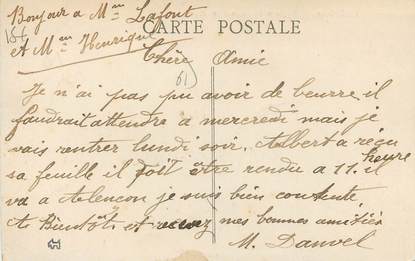 Bonjour a Mme Lafont
et Mme Henrique
CARTE POSTALE
Chère Amie
Je n'ai pas pu avoir de beurre il
faudrait attendre a mercredi mais je
vais rentrer lundi soir. Albert a reçu
sa feuille il doit être rendu a 11. heure il
va a Alencon je suis bien contente.
A Bientôt et recevez mes bonnes amitiés
M. Danvel